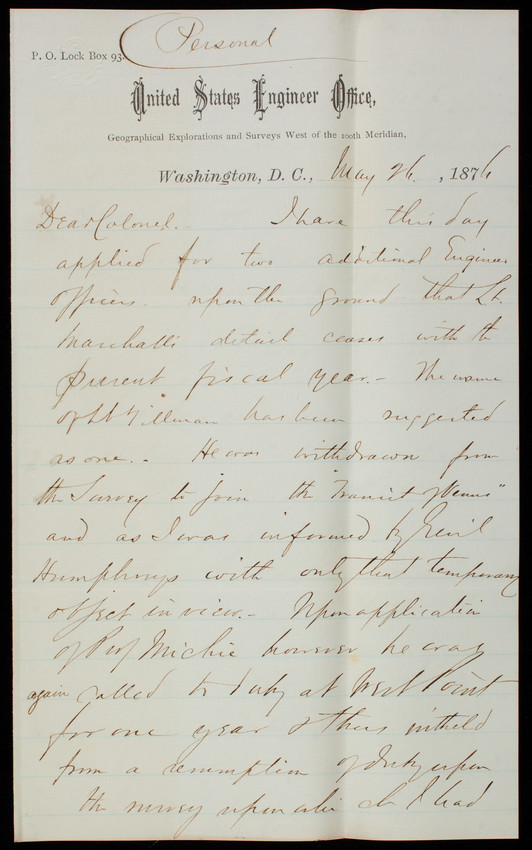 Personal
P. O. Lock Box 93.
United States Engineer Office,
Geographical Explorations and Surveys West of the 100th Meridian,
Washington, D. C., May 26, 1876
Dear Colonel. I have this day
applied for two additional Engineer
officers upon the ground that Lt.
Marshall's detail ceases with the
present fiscal year. – The name
of Lt Tillman has been suggested
as one. – He was withdrawn from
the Survey to join the "Transit of Venus"
and as I was informed by Genl
Humphreys with only that temporary
object in view. – Upon application
of Prof Michie however he was
again called to duty at West Point
for one year & thus withheld
from a resumption of duty upon
the survey upon which I had